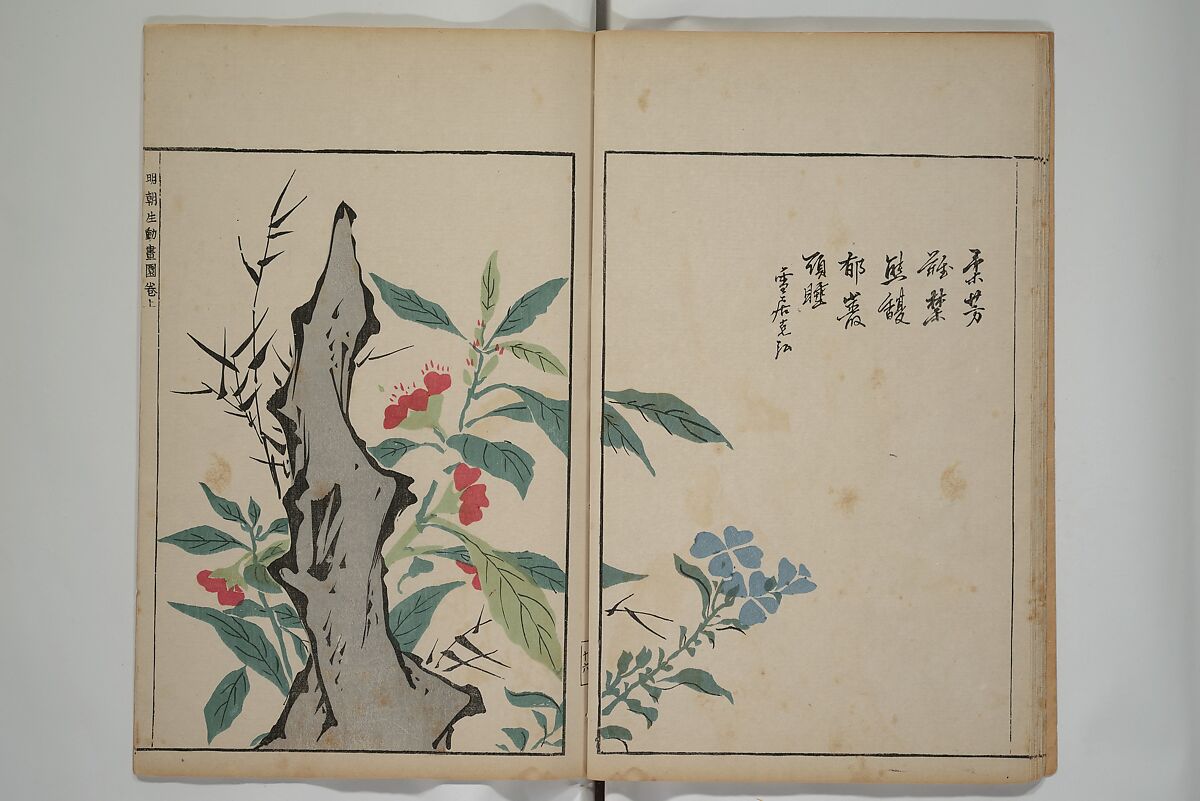 柔芳
難禁
熊馥
郁叢
頭睡
雪居克弘
明朝生動畫園卷上
十六